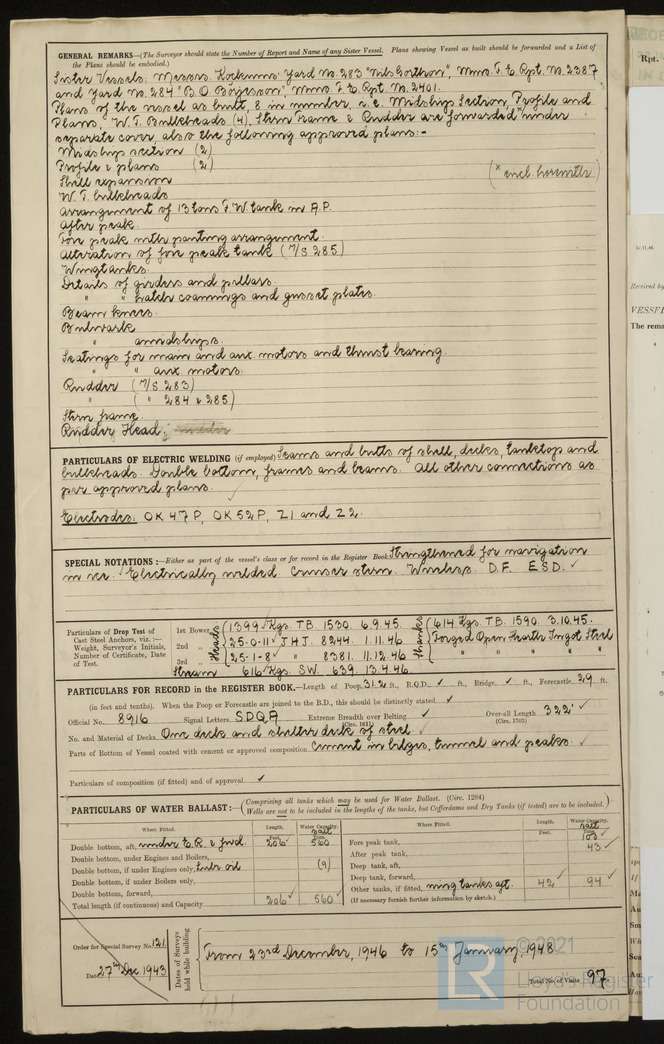 GENERAL REMARKS—(The Surveyor should state the Number of Report and Name of any Sister Vessel. Plans showing Vessel as built should be forwarded and a List of
the Plans should be embodied.)
Sister Vessels: Messrs. Kockums Yard No. 283 "Nils Gorthon", Mmo. F.E. Rpt. No. 2387
and Yard No. 284 "B.O. Börjesson", Mmo. F.E. Rpt. No. 2401.
Plans of the vessel as built, 8 in number, i.e. Midship Section, Profile and
Plans, W.T. Bulkheads (4), Stern Frame & Rudder are forwarded under
separate cover, also the following approved plans:-
Midship section (2)
Profile & plans (2)
(x encl. herewith)
Shell expansion
W.T. bulkheads
Arrangement of 13 tons F.W. tank in A.P.
After peak
Fore peak with panting arrangement.
Alteration of fore peak tank (M/S 285)
Wingtanks.
Details of girders and pillars.
" " hatch coamings and gusset plates.
Beam knees.
Bulwark
" amidships.
Seatings for main and aux. motors and thrust bearing.
" " aux. motors.
Rudder (M/S 283)
" ( " 284 & 285)
Stern frame.
Rudder Head.
PARTICULARS OF ELECTRIC WELDING (if employed) Seams and butts of shell, decks, tanktop and
bulkheads. Double bottom, frames and beams. All other connections as
per approved plans.
Electrodes: OK 47 P, OK 52 P, Z1 and Z2.
SPECIAL NOTATIONS:—Either as part of the vessel's class or for record in the Register Book. Strengthened for navigation
in ice. Electrically welded. Cruiser stern. Wireless. D.F. E.S.D.
Particulars of Drop Test of
Cast Steel Anchors, viz.:—
Weight, Surveyor's Initials,
Number of Certificate, Date
of Test.
1st Bower
2nd "
3rd "
Stream
Heads
1399 Kgs. TB. 1530. 6.9.45.
25-0-11 JHJ. 8244. 1.11.46
25-1-8 " 8381. 11.12.46
616 Kgs. SW. 639. 13.4.46
Shanks
614 Kgs. TB. 1590. 3.10.45.
Forged Open Hearth Ingot Steel
" " " " "
PARTICULARS FOR RECORD in the REGISTER BOOK.—Length of Poop 31.2 ft., R.Q.D. ft., Bridge ft., Forecastle 29 ft.
(in feet and tenths). When the Poop or Forecastle are joined to the B.D., this should be distinctly stated
Official No. 8916 Signal Letters SDQA Extreme Breadth over Belting (Circ. 1611) Over-all Length (Circ. 1703) 322'
No. and Material of Decks One deck and shelter deck of steel
Parts of Bottom of Vessel coated with cement or approved composition Cement in bilges, tunnel and peaks.
Particulars of composition (if fitted) and of approval
PARTICULARS OF WATER BALLAST:—(Comprising all tanks which may be used for Water Ballast. (Circ. 1284)
Wells are not to be included in the lengths of the tanks, but Cofferdams and Dry Tanks (if tested) are to be included.)
Where Fitted. Length. Feet. Water Capacity. salt Tons.
Double bottom, aft, under E.R. & fwd. 206 560
Double bottom, under Engines and Boilers,
Double bottom, if under Engines only, Lub. oil (9)
Double bottom, if under Boilers only,
Double bottom, forward,
Total length (if continuous) and Capacity 206 560
Where Fitted. Length. Feet. Water Capacity. salt Tons.
Fore peak tank, 100
After peak tank, 43
Deep tank, aft,
Deep tank, forward,
Other tanks, if fitted, wing tanks aft. 42 94
(If necessary furnish further information by sketch.)
Order for Special Survey No. 121
Date 27th Dec. 1943
Dates of Surveys
held while building
From 23rd December, 1946 to 15th January, 1948
Total No. of Visits 97
© 2021
LR
Lloyd's Register
Foundation
Rpt.
Received by
VESSEL
The rema